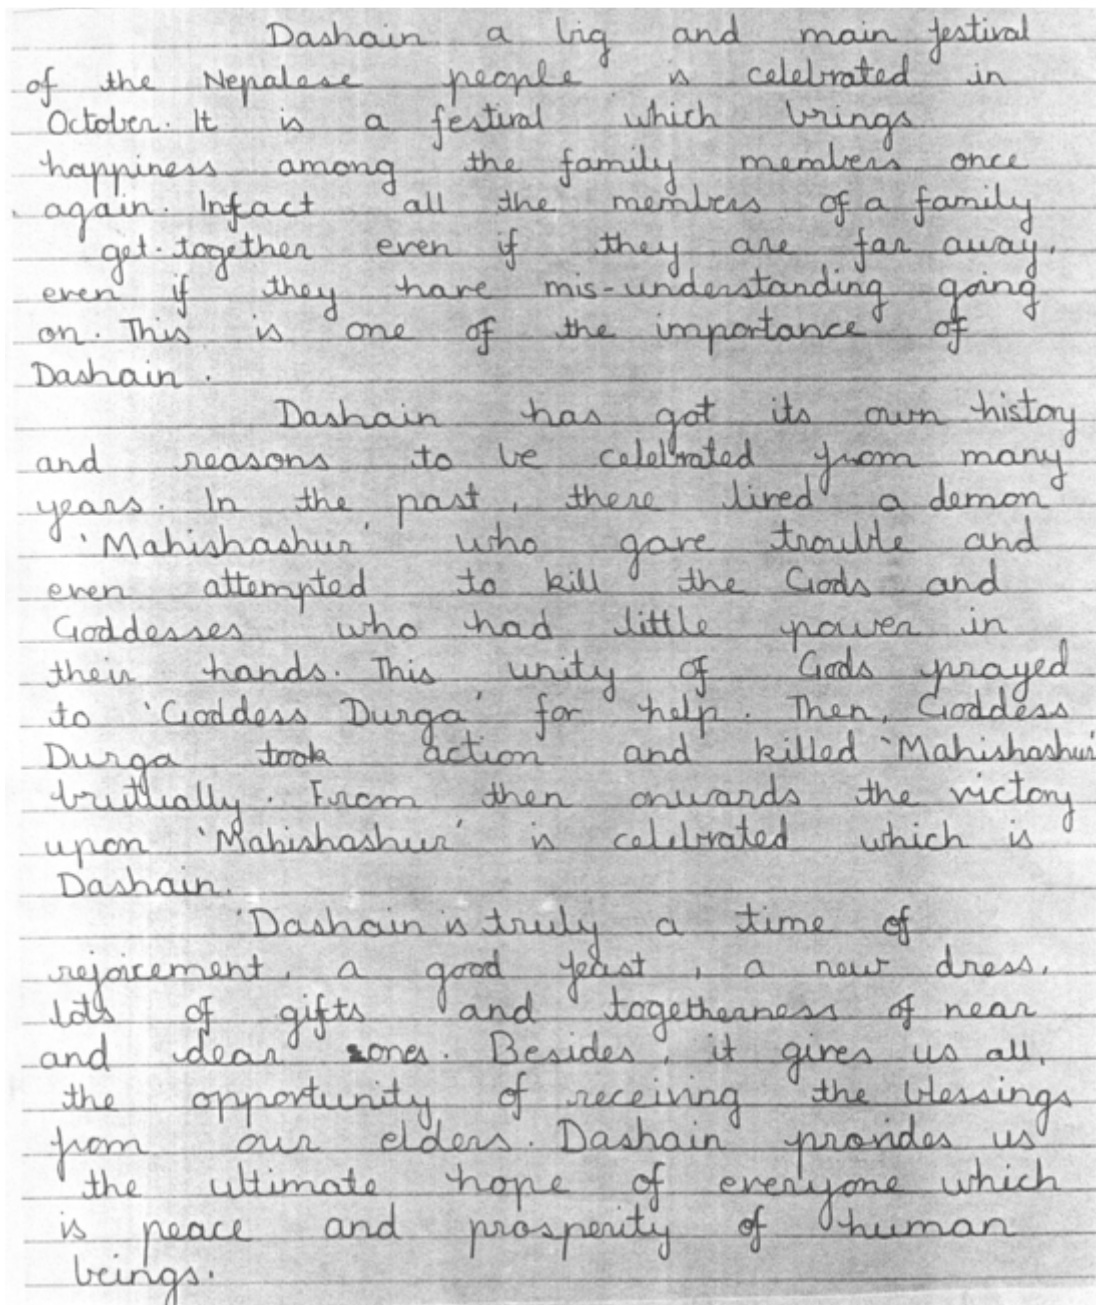 Dashain a big and main festival
of the Nepalese people is celebrated in
October. It is a festival which brings
happiness among the family members once
again. Infact all the members of a family
get-together even if they are far away,
even if they have mis-understanding going
on. This is one of the importance of
Dashain.
Dashain has got its own history
and reasons to be celebrated from many
years. In the past, there lived a demon
'Mahishashur' who gave trouble and
even attempted to kill the Gods and
Goddesses who had little power in
their hands. This unity of Gods prayed
to 'Goddess Durga' for help. Then, Goddess
Durga took action and killed 'Mahishashur'
bruttially. From then onwards the victory
upon 'Mahishashur' is celebrated which is
Dashain.
'Dashain is truly a time of
rejoicement, a good feast, a new dress,
lots of gifts and togetherness of near
and dear ones. Besides, it gives us all,
the opportunity of receiving the blessings
from our elders. Dashain provides us
the ultimate hope of everyone which
is peace and prosperity of human
beings.